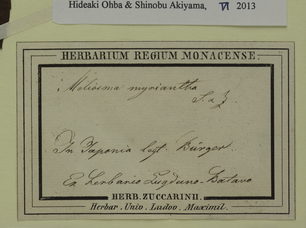 Hideaki Ohba & Shinobu Akiyama, TI 2013
HERBARIUM REGIUM MONACENSE.
Meliosma myriantha
S. & Z.
In Japonia legit Bürger.
Ex herbario Lugduno-Batavo
HERB. ZUCCARINII.
Herbar. Univ. Ludov. Maximil.